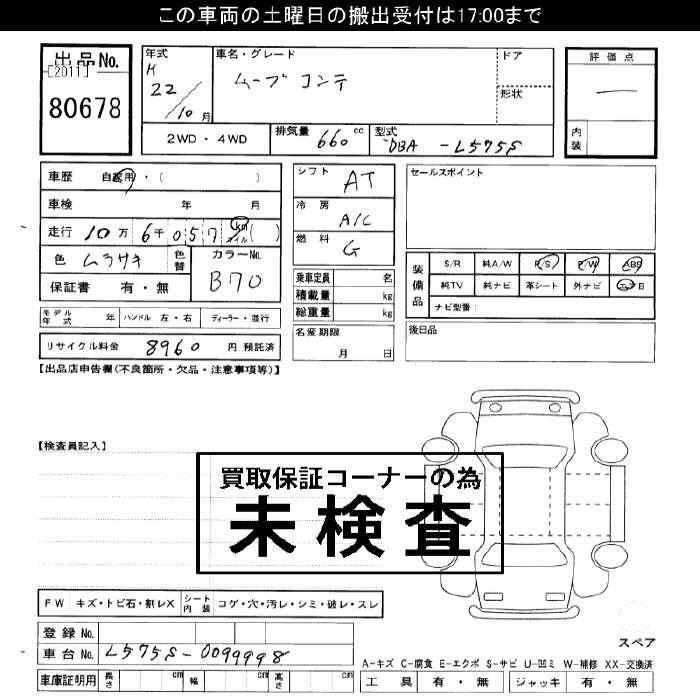 この車両の土曜日の搬出受付は17:00まで
出品No.
[2011]
80678
年式
H
22/10月
車名・グレード
ムーブコンテ
ドア
形状
評価点
一
内装
2WD・4WD
排気量 660 cc
型式 DBA-L575S
車歴 自家用・( )
車検 年 月
走行 10万6千057 km マイル ( )
色 ムラサキ
色替
カラーNo.
B70
保証書 有・無
モデル年式 年 ハンドル 左・右 ディーラー・並行
リサイクル料金 8960 円 預託済
シフト AT
冷房 A/C
燃料 G
乗車定員 名
積載量 kg
総重量 kg
名変期限
月 日
セールスポイント
装備品
S/R 純A/W P/S P/W ABS
純TV 純ナビ 革シート 外ナビ
ナビ型番:
後日品
【出品店申告欄(不良箇所・欠品・注意事項等)】
【検査員記入】
買取保証コーナーの為
未検査
FW キズ・トビ石・割レX
シート内装 コゲ・穴・汚レ・シミ・破レ・スレ
登録No.
車台No. L575S-0099998
車庫証明用 長さ cm 幅 cm 高さ cm
スペア
A-キズ C-腐食 E-エクボ S-サビ U-凹ミ W-補修 XX-交換済
工具 有・無 ジャッキ 有・無